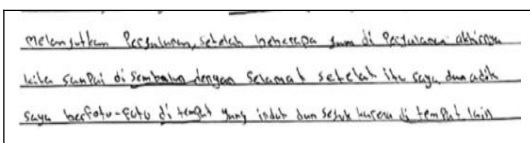 melanjutkan Perjalanan, setelah beberapa jam di Perjalanan akhirnya
kita sampai di sembalun dengan selamat setelah itu saya dan adik
saya berfoto-foto di tempat yang indah dan sejuk karena di tempat lain